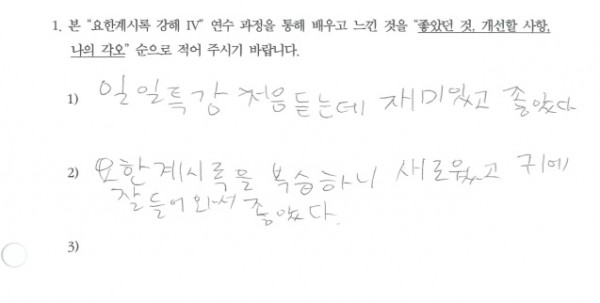 1. 본 "요한계시록 강해 IV" 연수 과정을 통해 배우고 느낀 것을 "좋았던 것, 개선할 사항,
나의 각오" 순으로 적어 주시기 바랍니다.
1) 일일특강 처음듣는데 재미있고 좋았다
2) 요한계시록을 복습하니 새로웠고 귀에
잘들어와서 좋았다.
3)